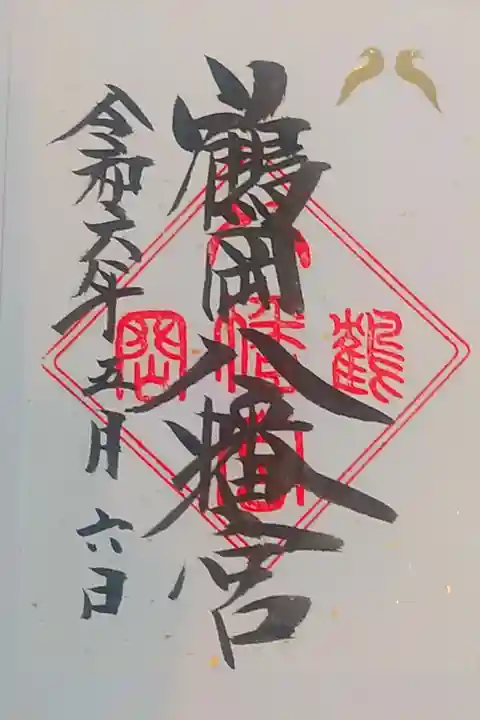 鶴岡八幡宮
令和六年五月六日
鶴
八幡宮
岡